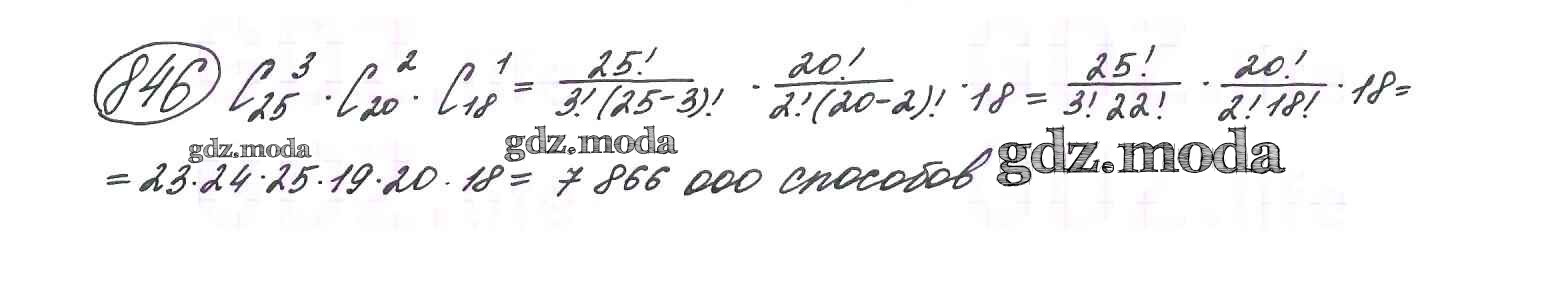 846 C₂₅³ · C₂₀² · C₁₈¹ = 25!/3!(25-3)! · 20!/2!(20-2)! · 18 = 25!/3! 22! · 20!/2! 18! · 18 =
gdz.moda gdz.moda gdz.moda
= 23·24·25·19·20·18 = 7 866 000 способов